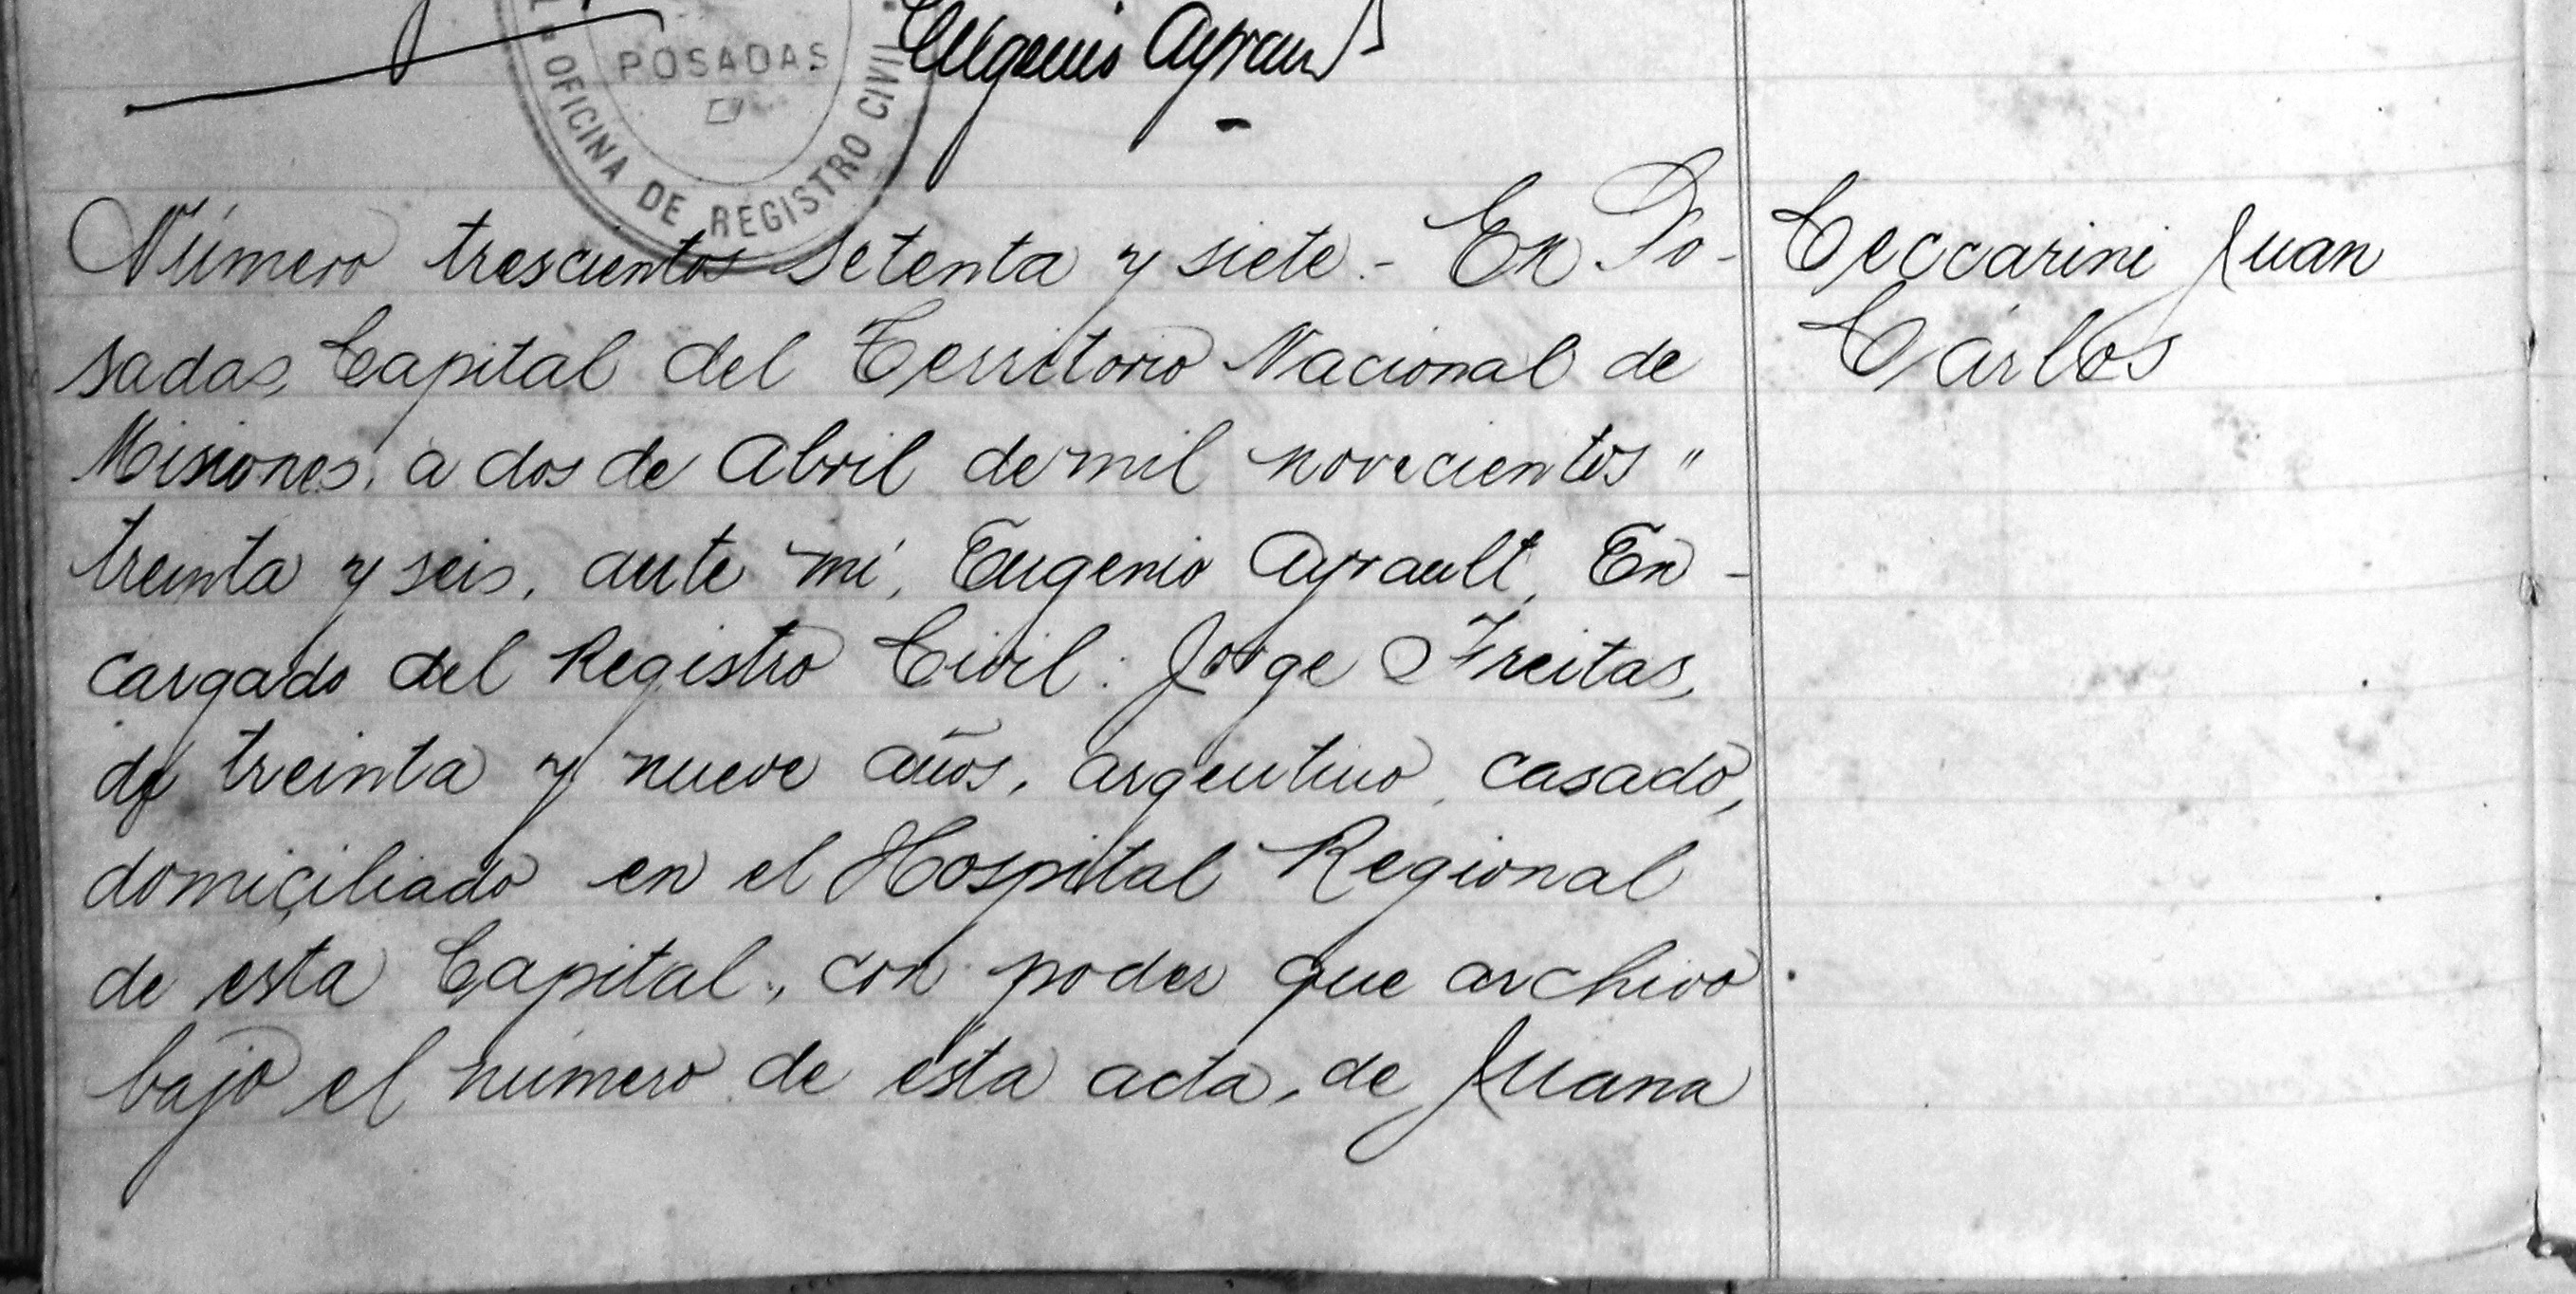 Eugenio Ayrault
POSADAS
OFICINA DE REGISTRO CIVIL
Número trescientos setenta y siete.- En Po-
sadas, Capital del Territorio Nacional de
Misiones, a dos de Abril de mil novecientos "
treinta y seis, ante mí, Eugenio Ayrault, En-
cargado del Registro Civil: Jorge Freitas,
de treinta y nueve años, argentino, casado,
domiciliado en el Hospital Regional
de esta Capital, con poder que archivo
bajo el número de esta acta, de Juana
Ceccarini Juan
Cárlos